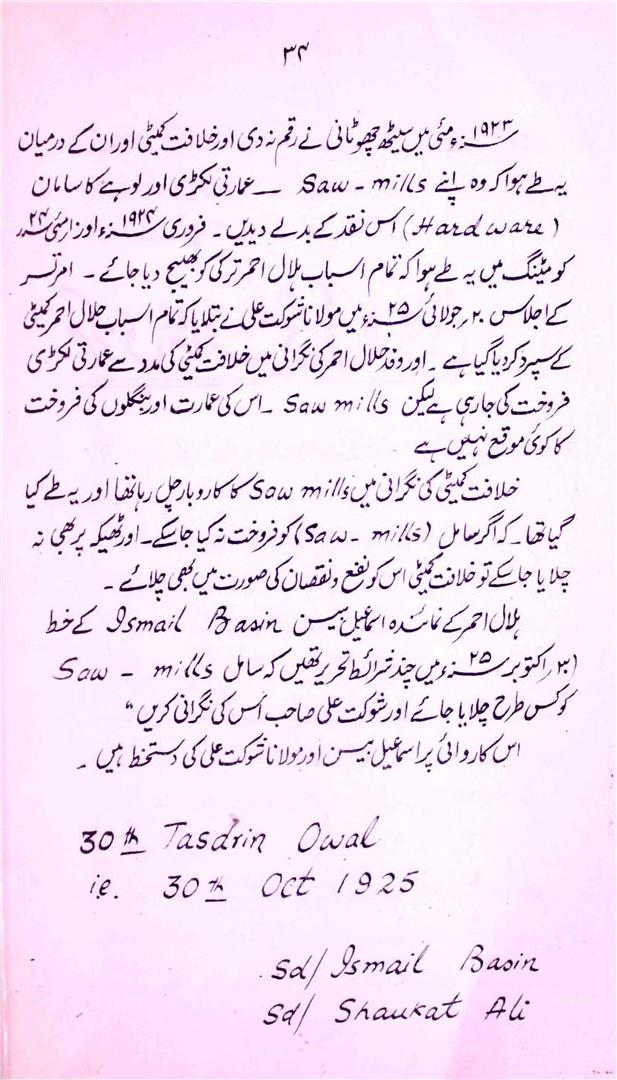 ۳۴
۱۹۲۳ء مئی میں سیٹھ چھوٹانی نے رقم نہ دی اور خلافت کمیٹی اور ان کے درمیان
یہ طے ہوا کہ وہ اپنے Saw - mills ـ عمارتی لکڑی اور لوہے کا سامان
(Hard ware) اس نقد کے بدلے دیدیں ۔ فروری ۱۹۲۴ء اور مئی ۲۴ء
کو میٹنگ میں یہ طے ہوا کہ تمام اسباب ہلال احمر ترکی کو بھیج دیا جائے ۔ امرتسر
کے اجلاس ۲۰ جولائی ۲۵ء میں مولانا شوکت علی نے بتلایا کہ تمام اسباب ہلال احمر کمیٹی
کے سپرد کر دیا گیا ہے ۔ اور وفد ہلال احمر کی نگرانی میں خلافت کمیٹی کی مدد سے عمارتی لکڑی
فروخت کی جا رہی ہے لیکن Saw mills ۔ اس کی عمارت اور بنگلوں کی فروخت
کا کوئی موقع نہیں ہے
خلافت کمیٹی کی نگرانی میں Saw mills کا کاروبار چل رہا تھا اور یہ طے کیا
گیا تھا ۔ کہ اگر سامل (Saw - mills) کو فروخت نہ کیا جا سکے ۔ اور ٹھیکہ پر بھی نہ
چلایا جا سکے تو خلافت کمیٹی اس کو نفع و نقصان کی صورت میں بھی چلائے ۔
ہلال احمر کے نمائندہ اسماعیل بیسن Ismail Basin کے خط
(۳۰ اکتوبر ۲۵ء میں چند شرائط تحریر تھیں کہ سامل Saw - mills
کو کس طرح چلایا جائے اور شوکت علی صاحب اس کی نگرانی کریں “
اس کاروائی پر اسماعیل بیسن اور مولانا شوکت علی کی دستخط ہیں ۔
30th Tasdrin Owal
i.e. 30th Oct 1925
Sd/ Ismail Basin
Sd/ Shaukat Ali